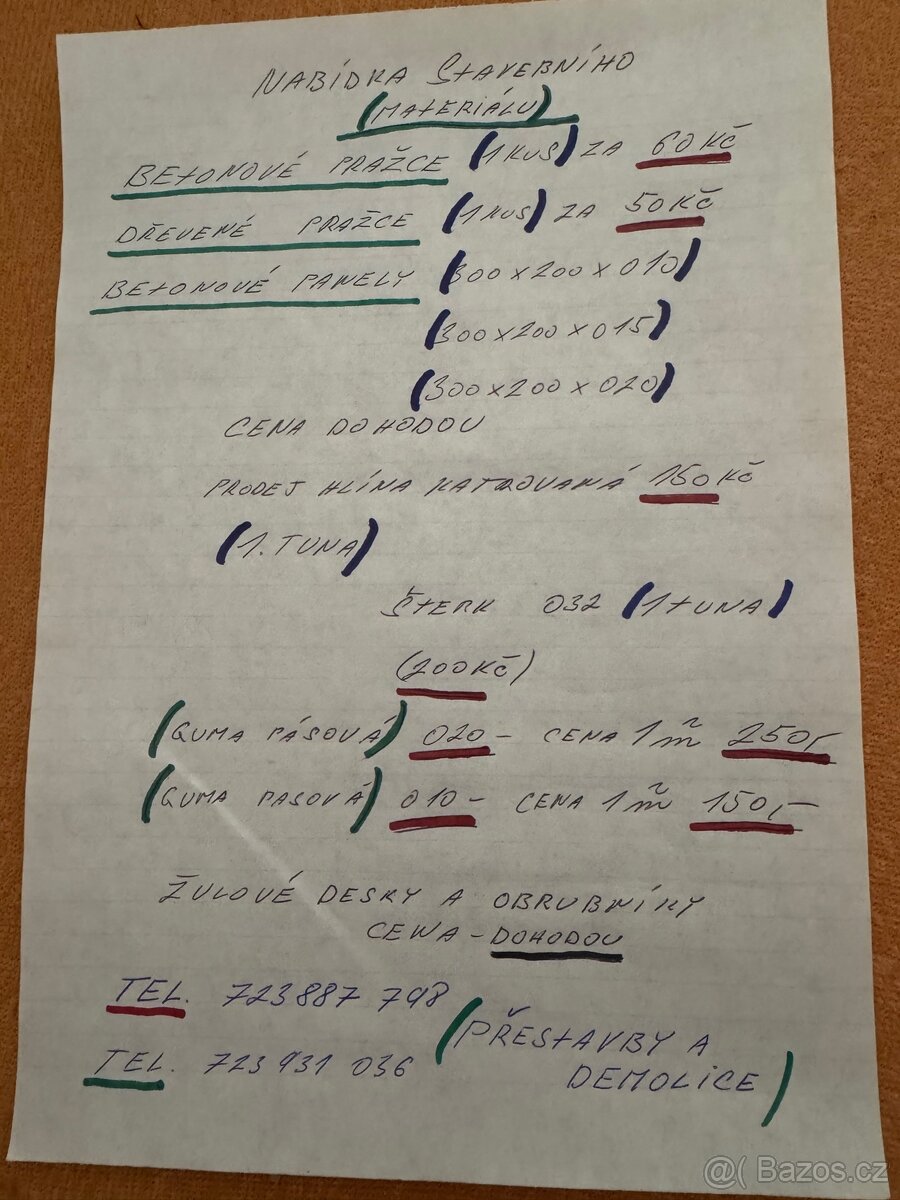 NABÍDKA STAVEBNÍHO
(MATERIÁLU)
BETONOVÉ PRAŽCE (1 KUS) ZA 60 KČ
DŘEVENÉ PRAŽCE (1 KUS) ZA 50 KČ
BETONOVÉ PANELY (300 x 200 x 010)
(300 x 200 x 015)
(300 x 200 x 020)
CENA DOHODOU
PRODEJ HLÍNA KATROVANÁ 150 KČ
(1. TUNA)
ŠTERK 032 (1 TUNA)
(200 KČ)
(GUMA PÁSOVÁ) 020 - CENA 1 m 250,-
(GUMA PASOVÁ) 010 - CENA 1 m 150,-
ŽULOVÉ DESKY A OBRUBNÍKY
CENA - DOHODOU
TEL. 723 887 798
(PŘESTAVBY A
TEL. 723 931 036
DEMOLICE)
@( Bazos.cz